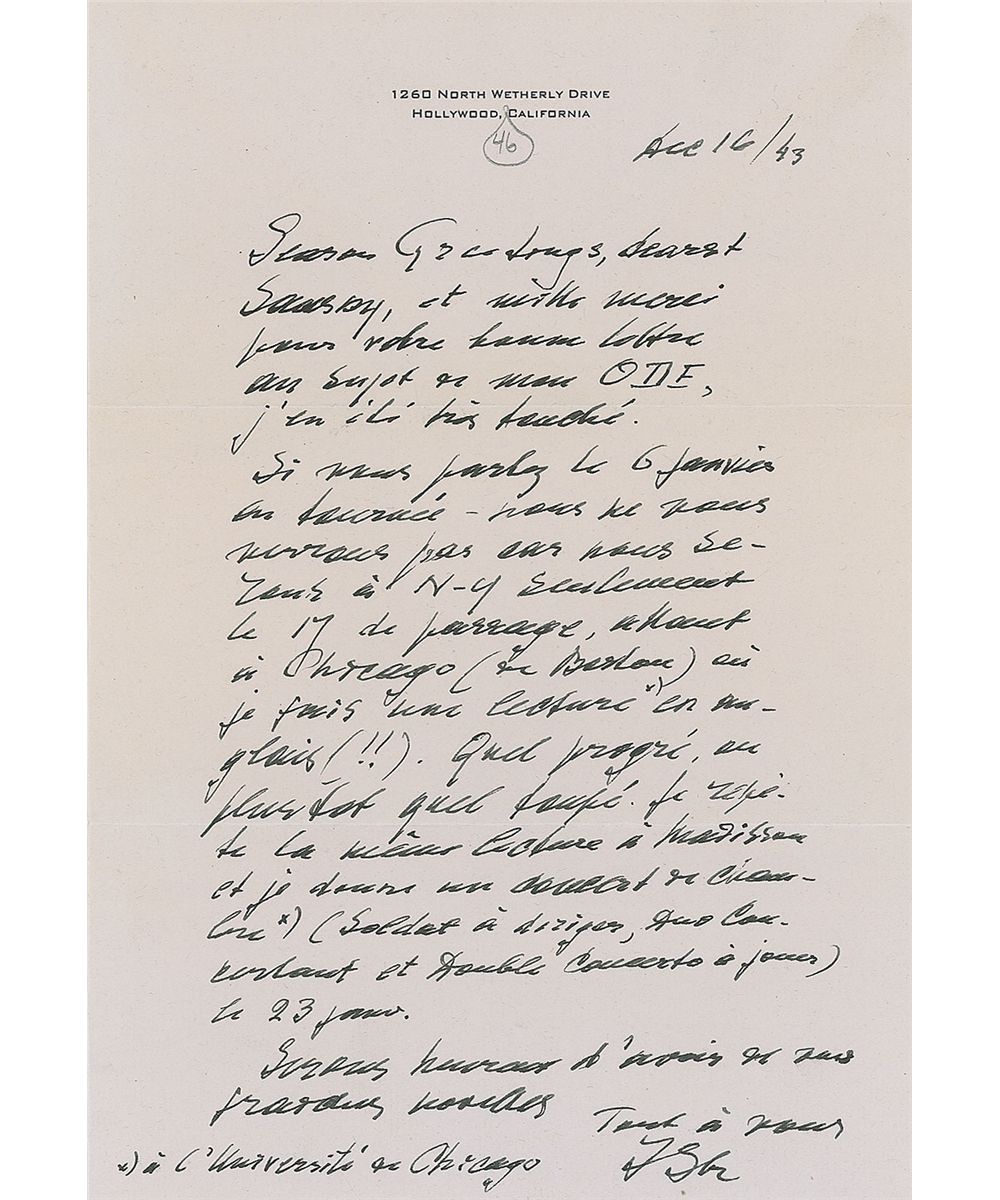 1260 North Wetherly Drive
Hollywood, California
46
Dec 16/43
Season Greetings, dearest
Samsky, et mille merci
pour votre bonne lettre
au sujet de mon ODE,
j'en été très touché.
Si vous partez le 6 janvier
en tournée – nous ne vous
verrons pas car nous se-
rons à N-Y seulement
le 17 de passage, allant
à Chicago (de Boston) où
je fais une lecture x) en an-
glais (!!). Quel progré, ou
plustôt quel toupé. Je repè-
te la même lecture à Madisson
et je donne un concert de cham-
bre x) (Soldat à diriger, Duo Con-
certant et Double Concerto à jouer)
le 23 janv.
Serons heureux d'avoir de vos
nouvelles
Tout à vous
IStr
x) à l'Université de Chicago